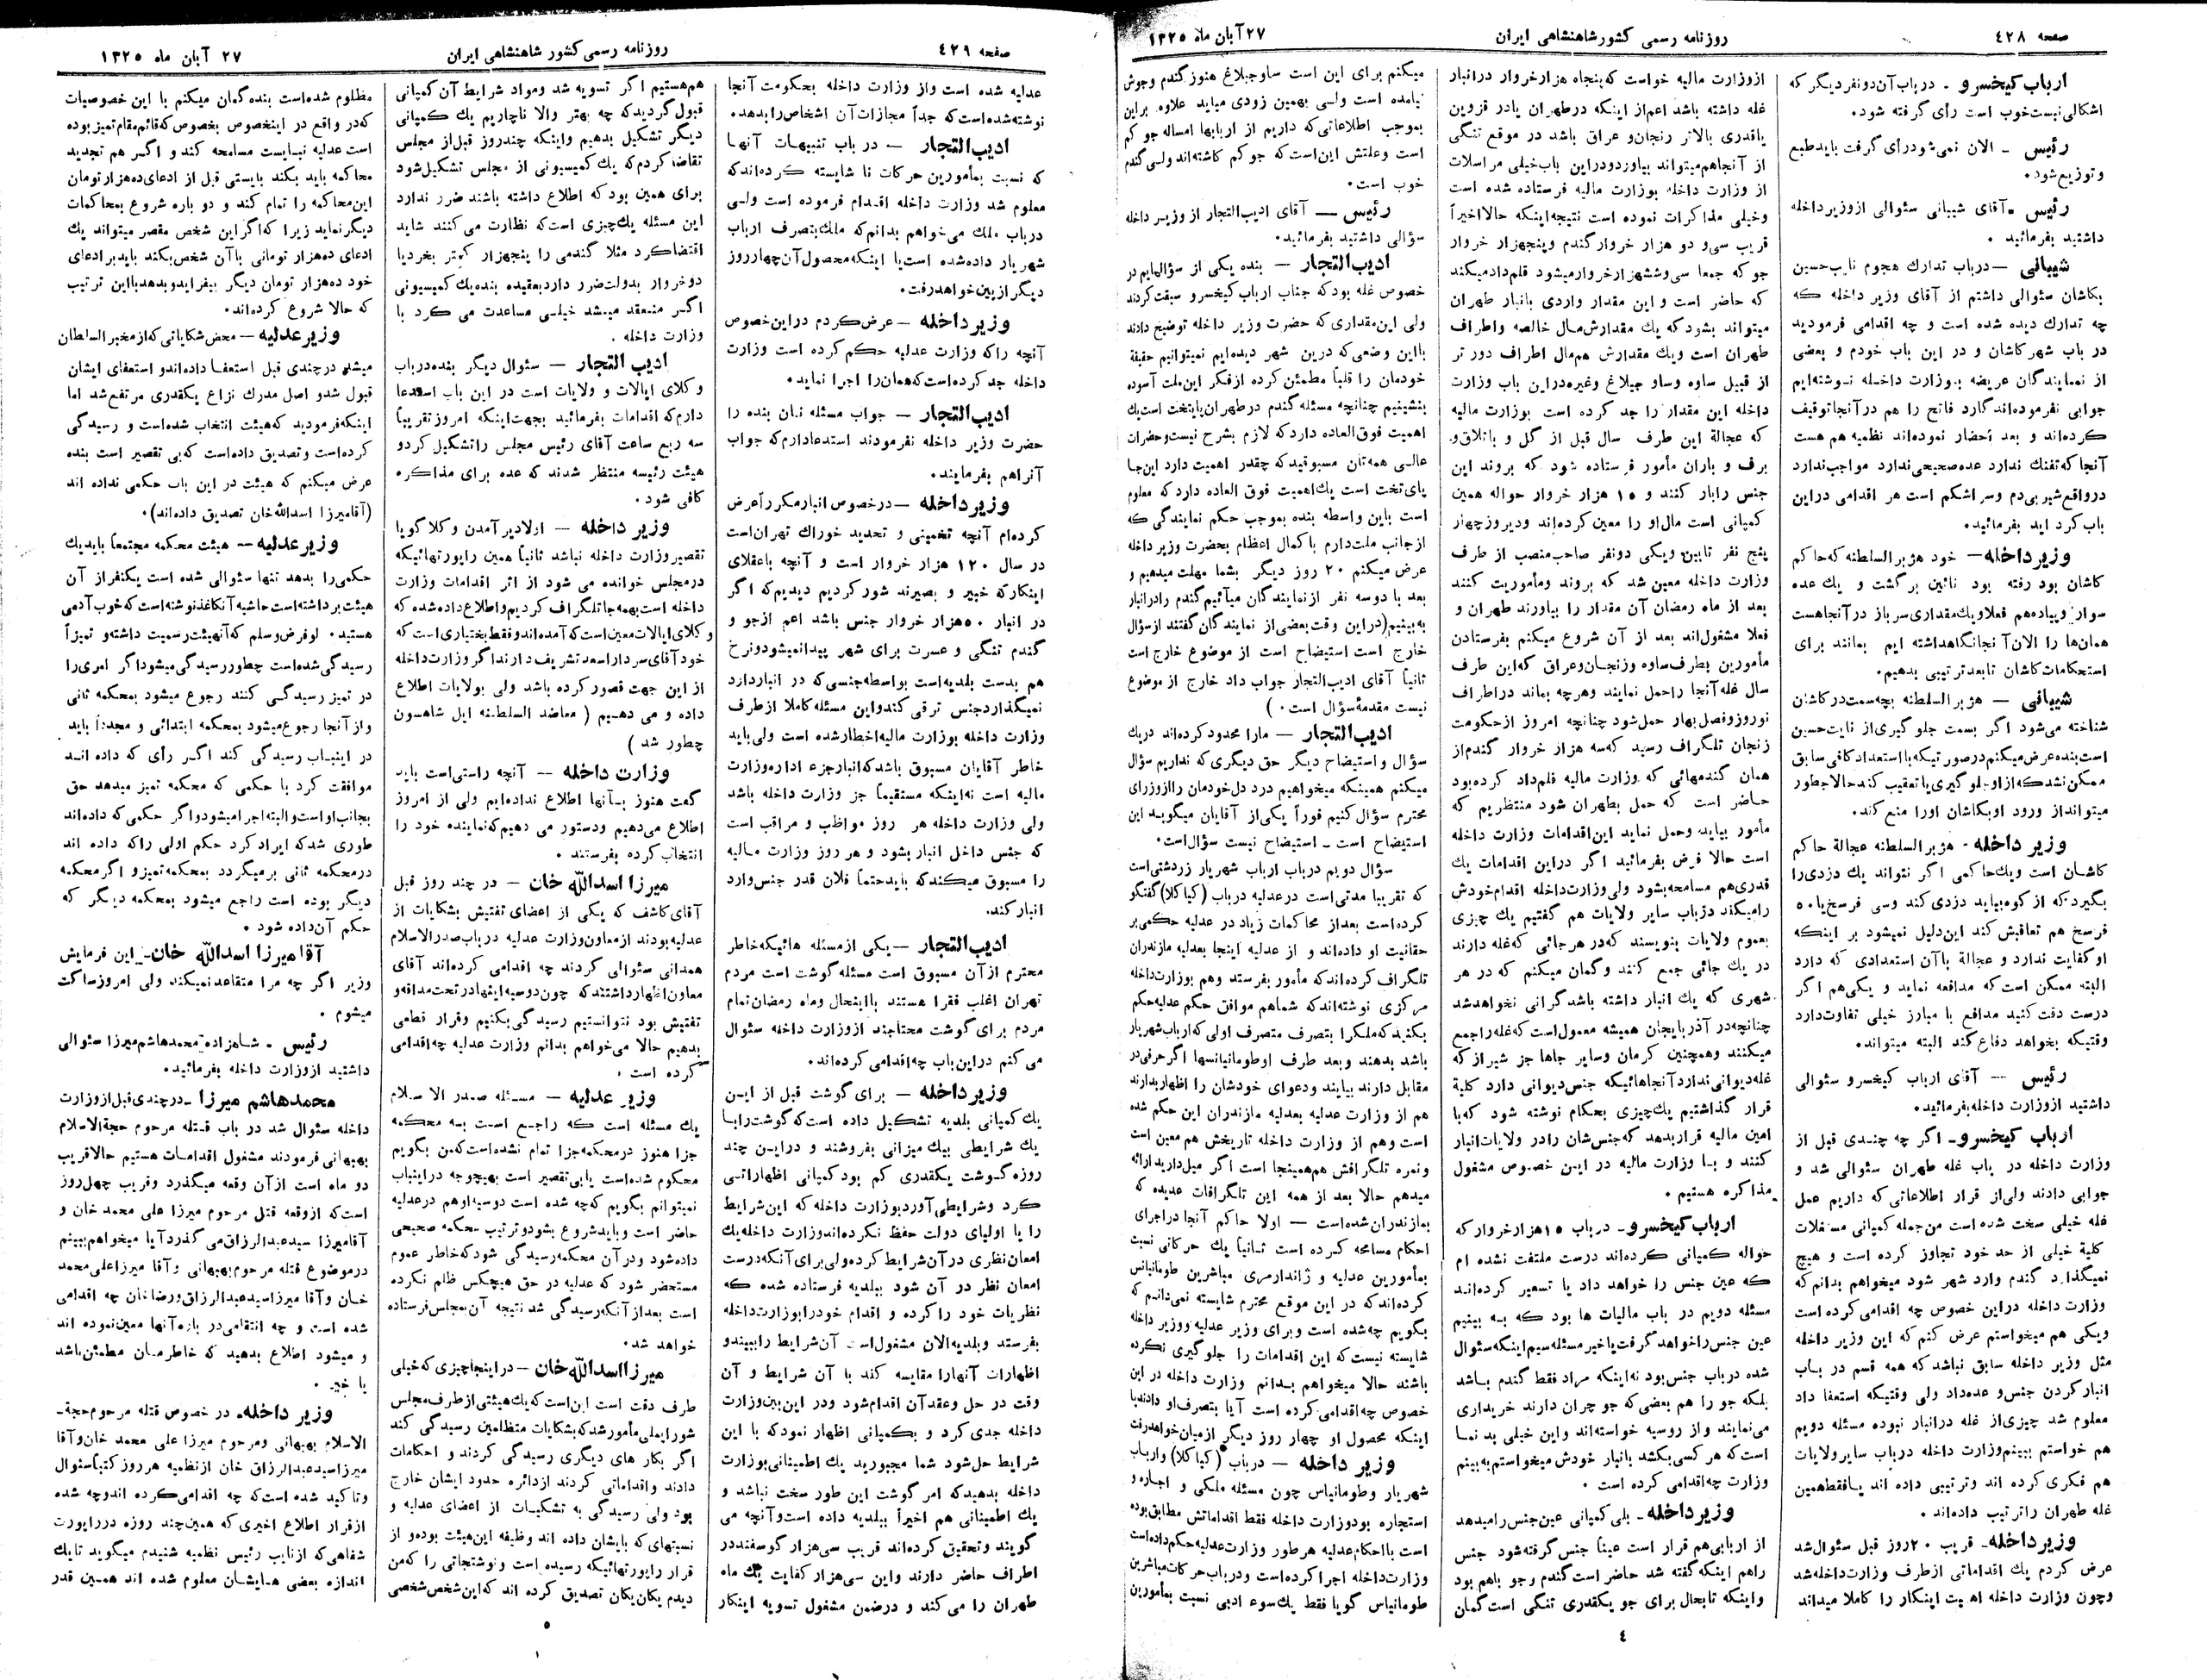 صفحه ٤٢٨
روزنامه رسمی کشور شاهنشاهی ایران
٢٧ آبان ماه ١٣٢٥
ارباب کیخسرو - در باب آن دو نفر دیگر که
اشکالی نیست خوب است رأی گرفته شود.
رئیس - الان نمی شود رأی گرفت باید طبع
و توزیع شود.
رئیس - آقای شیبانی سئوالی از وزیر داخله
داشتید بفرمائید .
شیبانی — در باب تدارك هجوم نایب حسین
بکاشان سئوالی داشتم از آقای وزیر داخله که
چه تدارك دیده شده است و چه اقدامی فرمودید
در باب شهر کاشان و در این باب خودم و بعضی
از نمایندگان عریضه بوزارت داخله نوشته ایم
جوابی نفرموده اند گارد فاتح را هم در آنجا توقیف
کرده اند و بعد احضار نموده اند نظمیه هم هست
آنجا که تفنك ندارد عده صحیحی ندارد مواجب ندارد
در واقع شیر بی دم و سر اشکم است هر اقدامی در این
باب کرده اید بفرمائید.
وزیر داخله — خود هژبر السلطنه که حاکم
کاشان بود رفته بود نائین برگشت و یك عده
سوار و پیاده هم فعلا و یك مقداری سرباز در آنجا هست
همان ها را الان آنجا نگاهداشته ایم بمانند برای
استحکامات کاشان تا بعد ترتیبی بدهیم.
شیبانی — هژبر السلطنه بچه سمت در کاشان
شناخته می شود اگر بسمت جلوگیری از نایب حسین
است بنده عرض میکنم در صورتیکه با استعداد کافی سابق
ممکن نشد که از او جلوگیری یا تعقیب کند حالا چطور
میتواند از ورود او بکاشان او را منع کند.
وزیر داخله - هژبر السلطنه عجالة حاکم
کاشان است و یك حاکمی اگر نتواند یك دزدی را
بگیرد که از کوه بیاید دزدی کند و سی فرسخ یا ٥٠
فرسخ هم تعاقبش کند این دلیل نمیشود بر اینکه
او کفایت ندارد و عجالة با آن استعدادی که دارد
البته ممکن است که مدافعه نماید و یکی هم اگر
درست دقت کنید مدافع با مبارز خیلی تفاوت دارد
وقتیکه بخواهد دفاع کند البته میتواند.
رئیس — آقای ارباب کیخسرو سئوالی
داشتید از وزارت داخله بفرمائید.
ارباب کیخسرو - اگر چه چندی قبل از
وزارت داخله در باب غله طهران سئوالی شد و
جوابی دادند ولی از قرار اطلاعاتی که داریم عمل
غله خیلی سخت شده است من جمله کمپانی مستغلات
کلیة خیلی از حد خود تجاوز کرده است و هیچ
نمیگذارد گندم وارد شهر شود میخواهم بدانم که
وزارت داخله در این خصوص چه اقدامی کرده است
و یکی هم میخواستم عرض کنم که این وزیر داخله
مثل وزیر داخله سابق نباشد که همه قسم در باب
انبار کردن جنس وعده داد ولی وقتیکه استعفا داد
معلوم شد چیزی از غله در انبار نبوده مسئله دویم
هم خواستم ببینم وزارت داخله در باب سایر ولایات
هم فکری کرده اند و ترتیبی داده اند یا فقط همین
غله طهران را ترتیب داده اند.
وزیر داخله - قریب ٢٠ روز قبل سئوال شد
عرض کردم یك اقداماتی از طرف وزارت داخله شد
و چون وزارت داخله اهمیت اینکار را کاملا میداند
از وزارت مالیه خواست که پنجاه هزار خروار در انبار
غله داشته باشد اعم از اینکه در طهران یا در قزوین
یا قدری بالاتر زنجان و عراق باشد در موقع تنگی
از آنجا هم میتواند بیاورد و در این باب خیلی مراسلات
از وزارت داخله بوزارت مالیه فرستاده شده است
و خیلی مذاکرات نموده است نتیجه اینکه حالا اخیراً
قریب سی و دو هزار خروار گندم و پنجهزار خروار
جو که جمعا سی و ششهزار خروار میشود قلم داد میکند
که حاضر است و این مقدار واردی بانبار طهران
میتواند بشود که یك مقدارش مال خالصه و اطراف
طهران است و یك مقدارش هم مال اطراف دورتر
از قبیل ساوه و ساوجبلاغ و غیره در این باب وزارت
داخله این مقدار را جد کرده است بوزارت مالیه
که عجالة این طرف سال قبل از گل و باتلاق و
برف و باران مأمور فرستاده شود که بروند این
جنس را بار کنند و ١٥ هزار خروار حواله همین
کمپانی است مال او را معین کرده اند و دیروز چهار
پنج نفر تابین و یکی دو نفر صاحب منصب از طرف
وزارت داخله معین شد که بروند و مأموریت کنند
بعد از ماه رمضان آن مقدار را بیاورند طهران و
فعلا مشغول اند بعد از آن شروع میکنم بفرستادن
مأمورین بطرف ساوه و زنجان و عراق که این طرف
سال غله آنجا را حمل نمایند و هرچه بماند در اطراف
نوروز و فصل بهار حمل شود چنانچه امروز از حکومت
زنجان تلگراف رسید که سه هزار خروار گندم از
همان گندمهائی که وزارت مالیه قلم داد کرده بود
حاضر است که حمل بطهران شود منتظریم که
مأمور بیاید و حمل نماید این اقدامات وزارت داخله
است حالا فرض بفرمائید اگر در این اقدامات یك
قدری هم مسامحه بشود ولی وزارت داخله اقدام خودش
را میکند در باب سایر ولایات هم گفتیم یك چیزی
بعموم ولایات بنویسند که در هر جائی که غله دارند
در یك جائی جمع کنند و گمان میکنم که در هر
شهری که یك انبار داشته باشد گرانی نخواهد شد
چنانچه در آذربایجان همیشه معمول است که غله را جمع
میکنند و همچنین کرمان و سایر جاها جز شیراز که
غله دیوانی ندارد آنجاهائیکه جنس دیوانی دارد کلیة
قرار گذاشتیم یك چیزی بحکام نوشته شود که با
امین مالیه قرار بدهد که جنس شان را در ولایات انبار
کنند و با وزارت مالیه در این خصوص مشغول
مذاکره هستیم .
ارباب کیخسرو - در باب ١٥ هزار خروار که
حواله کمپانی کرده اند درست ملتفت نشده ام
که عین جنس را خواهد داد یا تسعیر کرده اند
مسئله دویم در باب مالیات ها بود که به بینیم
عین جنس را خواهد گرفت یا خیر مسئله سیم اینکه سئوال
شده در باب جنس بود نه اینکه مراد فقط گندم باشد
بلکه جو را هم بعضی که جو چران دارند خریداری
می نمایند و از روسیه خواسته اند و این خیلی بد نما
است که هر کسی بکشد بانبار خودش میخواستم به بینم
وزارت چه اقدامی کرده است .
وزیر داخله - بلی کمپانی عین جنس را میدهد
از اربابی هم قرار است عیناً جنس گرفته شود جنس
راهم اینکه گفته شد حاضر است گندم و جو باهم بود
و اینکه تابحال برای جو یکقدری تنگی است گمان
میکنم برای این است ساوجبلاغ هنوز گندم و جوش
نیامده است ولی بهمین زودی میاید علاوه براین
بموجب اطلاعاتی که داریم از اربابها امساله جو کم
است و علتش این است که جو کم کاشته اند ولی گندم
خوب است.
رئیس — آقای ادیب التجار از وزیر داخله
سؤالی داشتید بفرمائید.
ادیب التجار — بنده یکی از سؤال‌ایم در
خصوص غله بود که جناب ارباب کیخسرو سبقت کردند
ولی این مقداری که حضرت وزیر داخله توضیح دادند
با این وضعی که درین شهر دیده ایم نمیتوانیم حقیقة
خودمان را قلباً مطمئن کرده از فکر این ملت آسوده
بنشینیم چنانچه مسئله گندم در طهران پایتخت است یك
اهمیت فوق العاده دارد که لازم بشرح نیست و حضرات
عالی همه تان مسبوقید که چقدر اهمیت دارد این جا
پای تخت است یك اهمیت فوق العاده دارد که معلوم
است باین واسطه بنده بموجب حکم نمایندگی که
از جانب ملت دارم با کمال اعظام بحضرت وزیر داخله
عرض میکنم ٢٠ روز دیگر بشما مهلت میدهیم و
بعد با دو سه نفر از نمایندگان میآئیم گندم را در انبار
به بینیم (در این وقت بعضی از نمایندگان گفتند از سؤال
خارج است استیضاح است از موضوع خارج است
ثانیاً آقای ادیب التجار جواب داد خارج از موضوع
نیست مقدمه سؤال است . )
ادیب التجار — ما را محدود کرده اند در یك
سؤال و استیضاح دیگر حق دیگری که نداریم سؤال
میکنم همینکه میخواهیم درد دل خودمان را از وزرای
محترم سؤال کنیم فوراً یکی از آقایان میگوید این
استیضاح است - استیضاح نیست سؤال است.
سؤال دویم در باب ارباب شهریار زردشتی است
که تقریبا مدتی است در عدلیه در باب (کیا کلا) گفتگو
کرده است بعد از محاکمات زیاد در عدلیه حکمی بر
حقانیت او داده اند و از عدلیه اینجا بعدلیه مازندران
تلگراف کرده اند که مأمور بفرستد و هم بوزارت داخله
مرکزی نوشته اند که شما هم موافق حکم عدلیه حکم
بکنید که ملکرا بتصرف متصرف اولی که ارباب شهریار
باشد بدهند و بعد طرف او طومانیانسها اگر حرفی در
مقابل دارند بیایند و دعوای خودشان را اظهار بدارند
هم از وزارت عدلیه بعدلیه مازندران این حکم شده
است وهم از وزارت داخله تاریخش هم معین است
و نمره تلگرافش هم همینجا است اگر میل دارید ارائه
میدهم حالا بعد از همه این تلگرافات عدیده که
بمازندران شده است — اولا حاکم آنجا در اجرای
احکام مسامحه کرده است ثانیاً یك حرکاتی نسبت
بمأمورین عدلیه و ژاندارمری مباشرین طومانیانس
کرده اند که در این موقع محترم شایسته نمی دانم که
بگویم چه شده است و برای وزیر عدلیه و وزیر داخله
شایسته نیست که این اقدامات را جلوگیری نکرده
باشند حالا میخواهم بدانم وزارت داخله در این
خصوص چه اقدامی کرده است آیا بتصرف او دادند با
اینکه محصول او چهار روز دیگر از میان خواهد رفت
وزیر داخله — در باب (کیا کلا) و ارباب
شهریار و طومانیانس چون مسئله ملکی و اجاره و
استجاره بود وزارت داخله فقط اقداماتش مطابق بوده
است با احکام عدلیه هر طور وزارت عدلیه حکم داده است
وزارت داخله اجرا کرده است و در باب حرکات مباشرین
طومانیانس گویا فقط یك سوء ادبی نسبت بمأمورین
٤
صفحه ٤٢٩
روزنامه رسمی کشور شاهنشاهی ایران
٢٧ آبان ماه ١٣٢٥
عدلیه شده است و از وزارت داخله بحکومت آنجا
نوشته شده است که جداً مجازات آن اشخاص را بدهد.
ادیب التجار — در باب تنبیهات آنها
که نسبت بمأمورین حرکات نا شایسته کرده اند که
معلوم شد وزارت داخله اقدام فرموده است ولی
در باب ملك می خواهم بدانم که ملك بتصرف ارباب
شهریار داده شده است یا اینکه محصول آن چهار روز
دیگر از بین خواهد رفت.
وزیر داخله — عرض کردم در این خصوص
آنچه را که وزارت عدلیه حکم کرده است وزارت
داخله جد کرده است که همان را اجرا نماید.
ادیب التجار — جواب مسئله نان بنده را
حضرت وزیر داخله نفرمودند استدعا دارم که جواب
آنرا هم بفرمایند.
وزیر داخله — در خصوص انبار مکرراً عرض
کرده ام آنچه تخمینی و تحدید خوراك تهران است
در سال ١٢٠ هزار خروار است و آنچه با عقلای
اینکار که خبیر و بصیرند شور کردیم دیدیم که اگر
در انبار ٥٠ هزار خروار جنس باشد اعم از جو و
گندم تنگی و عسرت برای شهر پیدا نمیشود و نرخ
هم بدست بلدیه است بواسطه جنسی که در انبار دارد
نمیگذارد جنس ترقی کند و این مسئله کاملا از طرف
وزارت داخله بوزارت مالیه اخطار شده است ولی باید
خاطر آقایان مسبوق باشد که انبار جزء اداره وزارت
مالیه است نه اینکه مستقیماً جز وزارت داخله باشد
ولی وزارت داخله هر روز مواظب و مراقب است
که جنس داخل انبار بشود و هر روز وزارت مالیه
را مسبوق میکند که باید حتماً فلان قدر جنس وارد
انبار کند.
ادیب التجار — یکی از مسئله هائیکه خاطر
محترم از آن مسبوق است مسئله گوشت است مردم
تهران اغلب فقرا هستند با اینحال و ماه رمضان تمام
مردم برای گوشت محتاجند از وزارت داخله سئوال
می کنم در این باب چه اقدامی کرده اند.
وزیر داخله — برای گوشت قبل از این
یك کمپانی بلدیه تشکیل داده است که گوشت را با
یك شرایطی بیك میزانی بفروشند و در این چند
روزه گوشت یکقدری کم بود کمپانی اظهاراتی
کرد و شرایطی آورد بوزارت داخله که این شرایط
را با اولیای دولت حفظ نکرده اند وزارت داخله یك
امعان نظری در آن شرایط کرده ولی برای آنکه درست
امعان نظر در آن شود ببلدیه فرستاده شده که
نظریات خود را کرده و اقدام خود را بوزارت داخله
بفرستد و بلدیه الان مشغول است آن شرایط را ببیند و
اظهارات آنها را مقایسه کند با آن شرایط و آن
وقت در حل و عقد آن اقدام شود و در این بین وزارت
داخله جدی کرد و بکمپانی اظهار نمود که با این
شرایط حل شود شما مجبورید یك اطمینانی بوزارت
داخله بدهید که امر گوشت این طور سخت نباشد و
یك اطمینانی هم اخیراً ببلدیه داده است و آنچه می
گویند و تحقیق کرده اند قریب سی هزار گوسفند در
اطراف حاضر دارند و این سی هزار کفایت یك ماه
طهران را می کند و در ضمن مشغول تسویه اینکار
هم هستیم اگر تسویه شد و مواد شرایط آن کمپانی
قبول گردید که چه بهتر والا ناچاریم یك کمپانی
دیگر تشکیل بدهیم و اینکه چند روز قبل از مجلس
تقاضا کردم که یك کمیسیونی از مجلس تشکیل شود
برای همین بود که اطلاع داشته باشند ضرر ندارد
این مسئله یك چیزی است که نظارت می کنند شاید
اقتضا کرد مثلا گندمی را پنجهزار کمتر بخرد یا
دو خروار بدولت ضرر دارد بعقیده بنده یك کمیسیونی
اگر منعقد میشد خیلی مساعدت می کرد با
وزارت داخله .
ادیب التجار — سئوال دیگر بنده در باب
وکلای ایالات و ولایات است در این باب استدعا
دارم که اقدامات بفرمائید بجهت اینکه امروز تقریباً
سه ربع ساعت آقای رئیس مجلس را تشکیل کرد و
هیئت رئیسه منتظر شدند که عده برای مذاکره
کافی شود .
وزیر داخله — اولا دیر آمدن وکلا گویا
تقصیر وزارت داخله نباشد ثانیاً همین راپورتهائیکه
در مجلس خوانده می شود از اثر اقدامات وزارت
داخله است بهمه جا تلگراف کردیم و اطلاع داده شده که
وکلای ایالات معین است که آمده اند و فقط بختیاری است که
خود آقای سردار اسعد تشریف دارند اگر وزارت داخله
از این جهت قصور کرده باشد ولی بولایات اطلاع
داده و می دهیم ( معاضد السلطنه ایل شاهسون
چطور شد )
وزارت داخله — آنچه راستی است باید
گفت هنوز بآنها اطلاع نداده ایم ولی از امروز
اطلاع می دهیم و دستور می دهیم که نماینده خود را
انتخاب کرده بفرستند .
میرزا اسدالله خان — در چند روز قبل
آقای کاشف که یکی از اعضای تفتیش بشکایات از
عدلیه بودند از معاون وزارت عدلیه در باب صدر الاسلام
همدانی سئوالی کردند چه اقدامی کرده اند آقای
معاون اظهار داشتند که چون دوسیه اینها در تحت مداقه و
تفتیش بود نتوانستیم رسیدگی بکنیم و قرار قطعی
بدهیم حالا می خواهم بدانم وزارت عدلیه چه اقدامی
کرده است .
وزیر عدلیه — مسئله صدر الاسلام
یك مسئله است که راجع است به محکمه
جزا هنوز در محکمه جزا تمام نشده است که من بگویم
محکوم شده است یا بی تقصیر است بهیچوجه در اینباب
نمیتوانم بگویم که چه شده است دوسیه او هم در عدلیه
حاضر است و باید شروع بشود و ترتیب محکمه صحیحی
داده شود و در آن محکمه رسیدگی شود که خاطر عموم
مستحضر شود که عدلیه در حق هیچکس ظلم نکرده
است بعد از آنکه رسیدگی شد نتیجه آن مجلس فرستاده
خواهد شد.
میرزا اسدالله خان — در اینجا چیزی که خیلی
طرف دقت است این است که یك هیئتی از طرف مجلس
شورایملی مأمور شد که بشکایات متظلمین رسیدگی کند
اگر بکار های دیگری رسیدگی کردند و احکامات
دادند و اقداماتی کردند از دائره حدود ایشان خارج
بود ولی رسیدگی به تشکیات از اعضای عدلیه و
نسبتهای که بایشان داده اند وظیفه این هیئت بوده و از
قرار راپورتهائیکه رسیده است و نوشتجاتی را که من
دیدم یکان یکان تصدیق کرده اند که این شخص شخصی
مظلوم شده است بنده گمان میکنم با این خصوصیات
که در واقع در اینخصوص بخصوص که قائم مقام تمیز بوده
است عدلیه نبایست مسامحه کند و اگر هم تجدید
محاکمه باید بکند بایستی قبل از ادعای ده هزار تومان
این محاکمه را تمام کند و دو باره شروع بمحاکمات
دیگر نماید زیرا که اگر این شخص مقصر میتواند یك
ادعای ده هزار تومانی با آن شخص بکند باید بر ادعای
خود ده هزار تومان دیگر بیفزاید و بدهد با این ترتیب
که حالا شروع کرده اند.
وزیر عدلیه — محض شکایاتی که از مخبر السلطان
میشد در چندی قبل استعفا داده اند و استعفای ایشان
قبول شد و اصل مدرك نزاع یکقدری مرتفع شد اما
اینکه فرمودید که هیئت انتخاب شده است و رسیدگی
کرده است و تصدیق داده است که بی تقصیر است بنده
عرض میکنم که هیئت در این باب حکمی نداده اند
(آقا میرزا اسدالله خان تصدیق داده اند).
وزیر عدلیه — هیئت محکمه مجتمعاً باید یك
حکمی را بدهد تنها سئوالی شده است یکنفر از آن
هیئت برداشته است حاشیه آن کاغذ نوشته است که خوب آدمی
هستید . لو فرض و سلم که آن هیئت رسمیت داشته و تمیزاً
رسیدگی شده است چطور رسیدگی میشود اگر امری را
در تمیز رسیدگی کنند رجوع میشود بمحکمه ثانی
و از آنجا رجوع میشود بمحکمه ابتدائی و مجدداً باید
در اینباب رسیدگی کند اگر رأی که داده اند
موافقت کرد با حکمی که محکمه تمیز میدهد حق
بجانب او است و البته اجرا میشود و اگر حکمی که داده اند
طوری شد که ایراد کرد حکم اولی را که داده اند
در محکمه ثانی برمیگردد بمحکمه تمیز و اگر محکمه
دیگر بوده است راجع میشود بمحکمه دیگر که
حکم آن داده شود .
آقا میرزا اسدالله خان - این فرمایش
وزیر اگر چه مرا متقاعد نمیکند ولی امروز ساکت
میشوم .
رئیس - شاهزاده محمد هاشم میرزا سئوالی
داشتید از وزارت داخله بفرمائید.
محمد هاشم میرزا - در چندی قبل از وزارت
داخله سئوال شد در باب قتله مرحوم حجة الاسلام
بهبهانی فرمودند مشغول اقدامات هستیم حالا قریب
دو ماه است از آن وقعه میگذرد و قریب چهل روز
است که از وقعه قتل مرحوم میرزا علی محمد خان و
آقا میرزا سید عبدالرزاق می گذرد آیا میخواهم ببینم
در موضوع قتله مرحوم بهبهانی و آقا میرزا علی محمد
خان و آقا میرزا سید عبدالرزاق و رضا خان چه اقدامی
شده است و چه انتقامی در باره آنها معین نموده اند
و میشود اطلاع بدهید که خاطرمان مطمئن باشد
یا خیر .
وزیر داخله - در خصوص قتله مرحوم حجة-
الاسلام بهبهانی و مرحوم میرزا علی محمد خان و آقا
میرزا سید عبدالرزاق خان از نظمیه هر روز کتباً سئوال
و تاکید شده است که چه اقدامی کرده اند و چه شده
از قرار اطلاع اخیری که همین چند روزه در راپورت
شفاهی که از نایب رئیس نظمیه شنیدم میگوید تا یك
اندازه بعضی هایشان معلوم شده اند همین قدر
٥